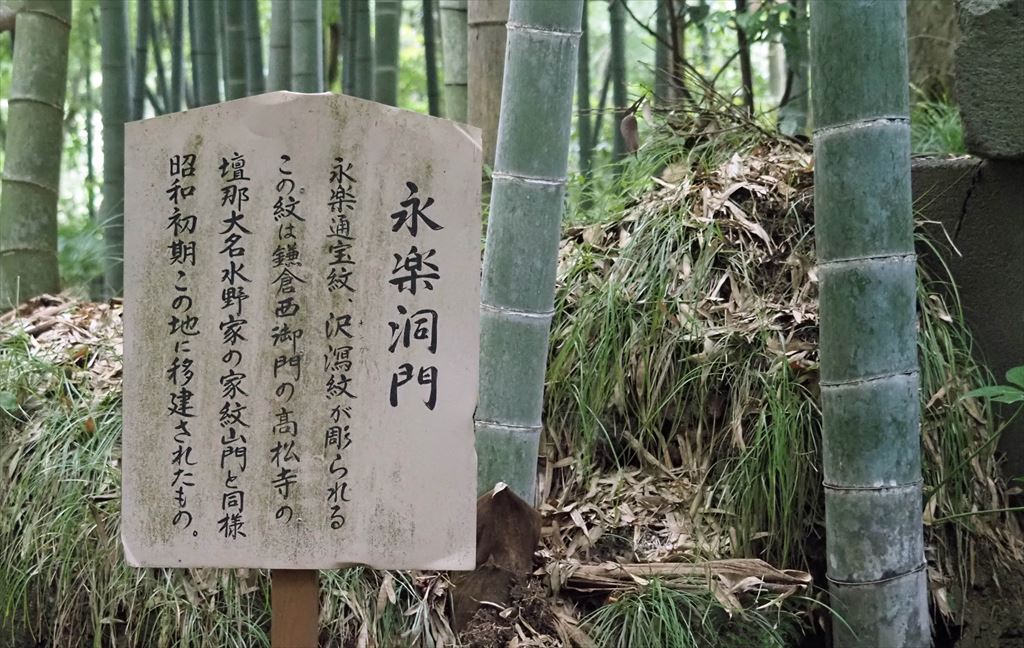 永楽洞門
永楽通宝紋、沢瀉紋が彫られれる
この紋は鎌倉西御門の高松寺の
壇那大名水野家の家紋山門と同様
昭和初期この地に移建されたもの。